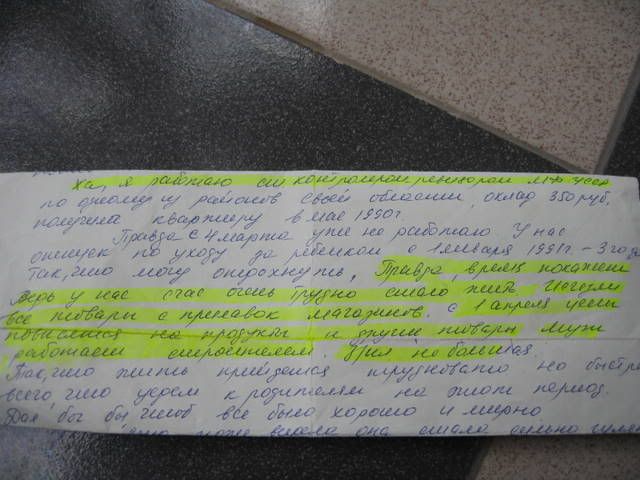 ха, я работаю ст контролером ревизором
по одному из районов своей области, оклад 350 руб.
получила квартиру в мае 1990 г.
Правда с 4 марта уже не работаю у нас
отпуск по уходу за ребенком с 1 января 1991 г. - 3 года
Так, что могу отдохнуть. Правда, время покажет
Ведь у нас счас очень трудно стало жить Исчезли
все товары с прилавок магазинов. с 1 апреля цены
повысились на продукты и другие товары Муж
работает строителем. не большая.
Так, что жить придется трудновато но быстрей
всего, что уедем к родителям на этот период.
Дай, бог бы чтоб все было хорошо и мирно
она стала сильно